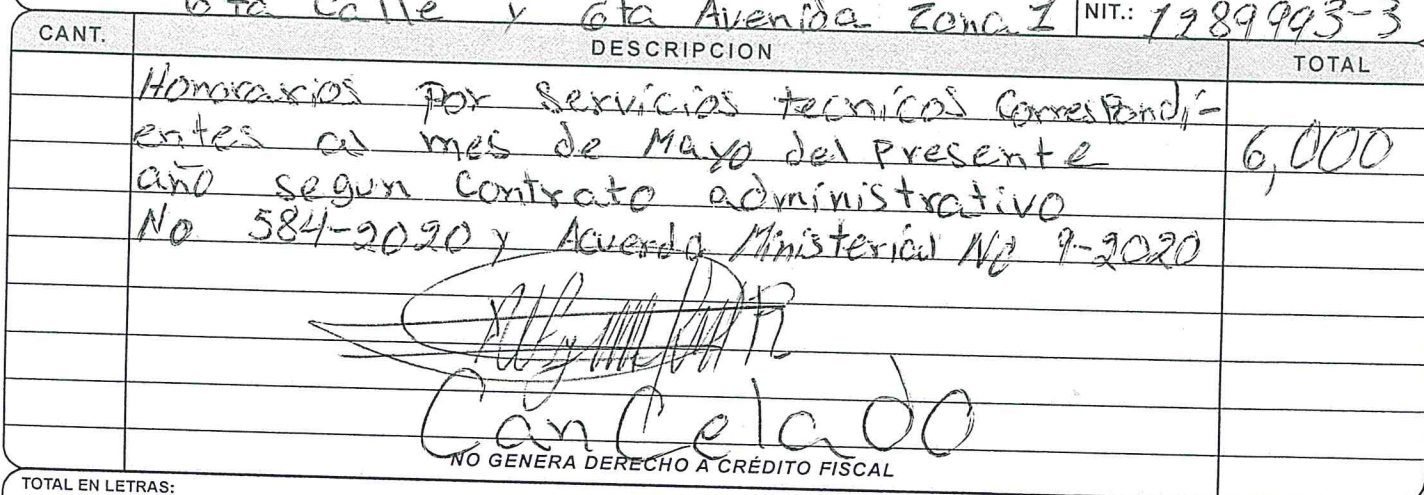 6ta Calle y 6ta Avenida Zona 1 NIT.: 1289993-3
CANT. DESCRIPCION TOTAL
Honorarios Por Servicios tecnicos Correspondi-
entes al mes de Mayo del Presente 6,000
año segun Contrato administrativo
No 584-2020 y Acuerdo Ministerial No 9-2020
Cancelado
NO GENERA DERECHO A CRÉDITO FISCAL
TOTAL EN LETRAS: